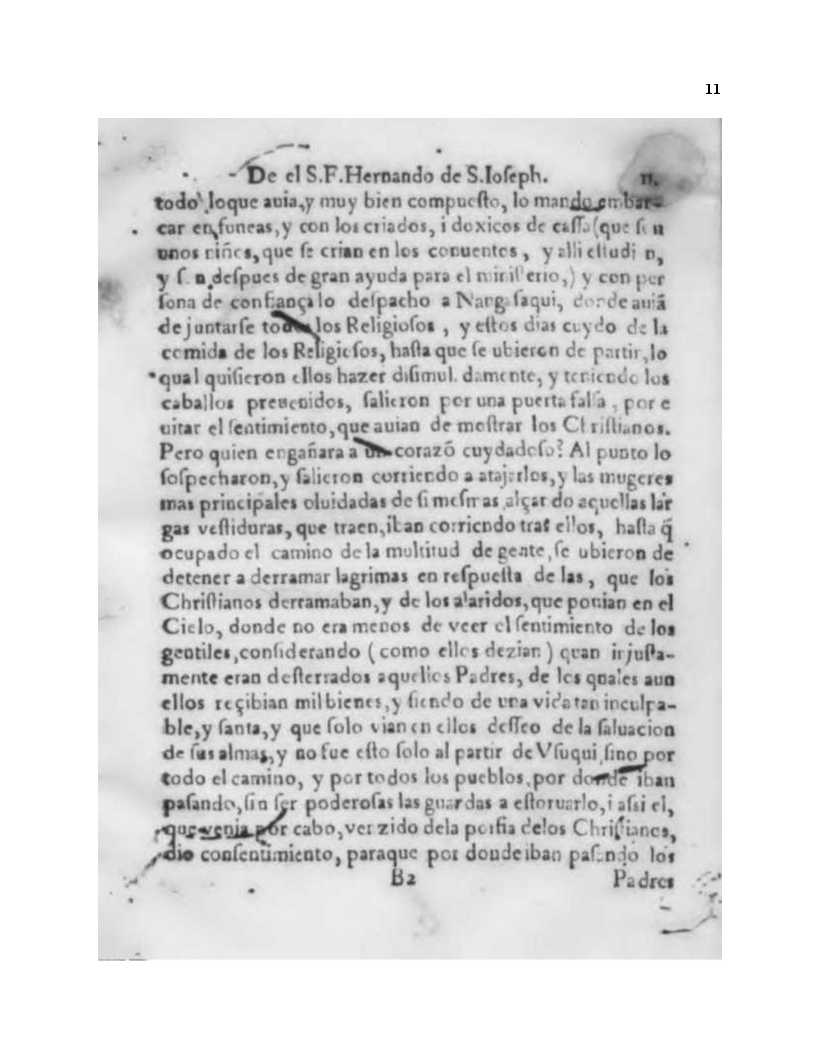 11
De el S.F.Hernando de S.Ioseph. 11.
todo loque auia,y muy bien compuesto, lo mando embar-
car en funeas,y con los criados, i doxicos de cassa(que son
unos niños, que se crian en los conuentos, y alli estudian,
y son despues de gran ayuda para el ministerio,) y con per
sona de confiança lo despacho a Nangasaqui, donde auiã
de juntarse todos los Religiosos, y estos dias cuydo de la
comida de los Religiosos, hasta que se ubieron de partir, lo
qual quisieron ellos hazer disimuladamente, y teniendo los
caballos preuenidos, salieron por una puerta falsa, por e
uitar el sentimiento, que auian de mostrar los Christianos.
Pero quien engañara a un corazõ cuydadoso? Al punto lo
sospecharon,y salieron corriendo a atajarlos,y las mugeres
mas principales oluidadas de si mesmas alçando aquellas lar
gas vestiduras, que traen,iban corriendo tras ellos, hasta q̃
ocupado el camino de la multitud de gente, se ubieron de
detener a derramar lagrimas en respuesta de las, que los
Christianos derramaban,y de los alaridos,que ponian en el
Cielo, donde no era menos de veer el sentimiento de los
gentiles,considerando (como ellos dezian) quan injusta-
mente eran desterrados aquellos Padres, de los quales aun
ellos reçibian mil bienes,y siendo de una vida tan inculpa-
ble,y santa,y que solo vian en ellos desseo de la saluacion
de sus almas,y no fue esto solo al partir de Vsuqui,sino por
todo el camino, y por todos los pueblos,por donde iban
pasando,sin ser poderosas las guardas a estoruarlo,i assi el,
que venia por cabo,venzido dela porfia delos Christianos,
dio consentimiento, paraque por donde iban pasando los
B2 Padres